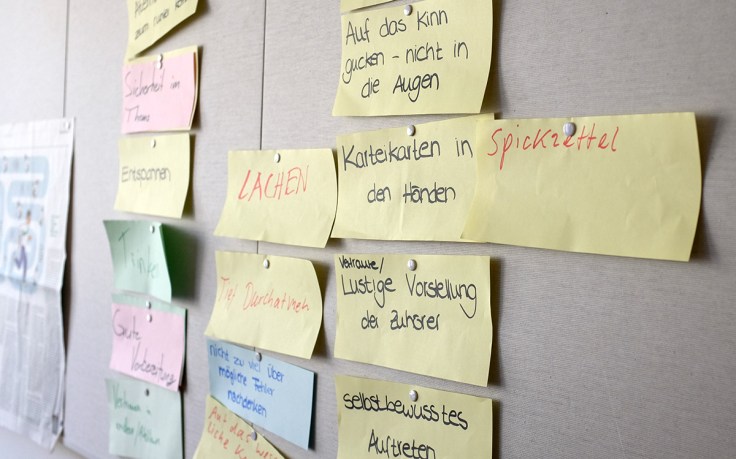 zum
Sicherheit im
Thema
Entspannen
Trinken
Gute
Vorbereitung
LACHEN
Tief Durchatmen
nicht zu viel über
mögliche Fehler
nachdenken
Auf das
Auf das Kinn
gucken - nicht in
die Augen
Karteikarten in
den Händen
Vertraute/
Lustige Vorstellung
der Zuhörer
selbstbewusstes
Auftreten
Spickzettel